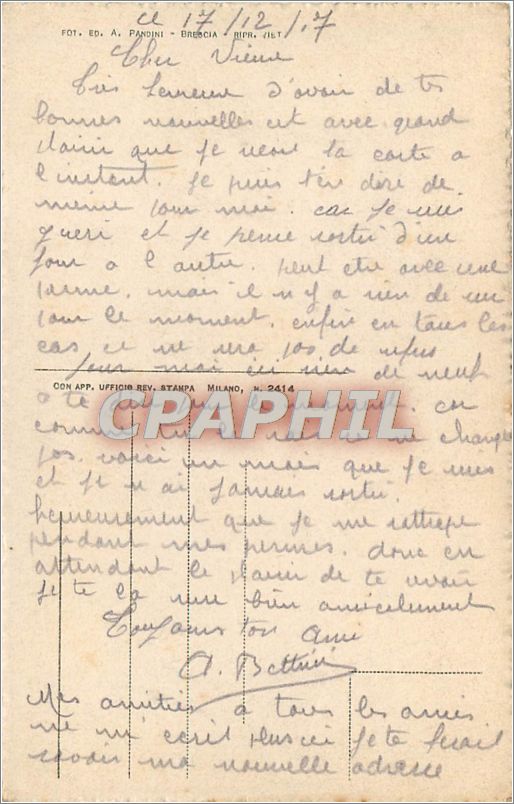 Le 17/12/17
FOT. ED. A. PANDINI - BRESCIA RIPR. VIET
Cher Vieux
Très heureux d'avoir de tes
bonnes nouvelles est avec grand
plaisir que je recois ta carte a
l'instant. Je puis t'en dire de
même pour moi. car je suis
gueri et je pense sortir d'un
jour a l'autre. peut etre avec une
perme. mais il n'y a rien de sur
pour le moment. enfin en tous les
cas ce ne sera pas de refus
Pour moi ici rien de neuf
CON APP. UFFICIO REV. STAMPA MILANO, N. 2414
a te moment. car
comme tu le sais ne change
pas. voici un mois que je suis
et je n'ai jamais sorti.
heureusement que je me rattrape
pendant mes permes. donc en
attendant le plaisir de te revoir
je te la serre bien amicalement
Toujours ton ami
A. Bettini
Mes amitiés a tous les amis
ne m'ecrit plus ici je te ferait
savoir ma nouvelle adresse
CPAPHIL